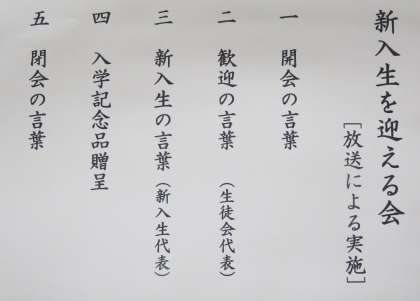 新入生を迎える会
[放送による実施]
一 開会の言葉
二 歓迎の言葉 (生徒会代表)
三 新入生の言葉 (新入生代表)
四 入学記念品贈呈
五 閉会の言葉